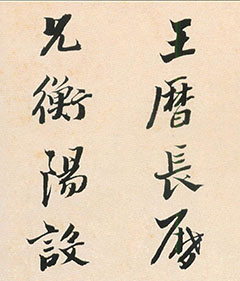 王曆長曆
兄衡陽設